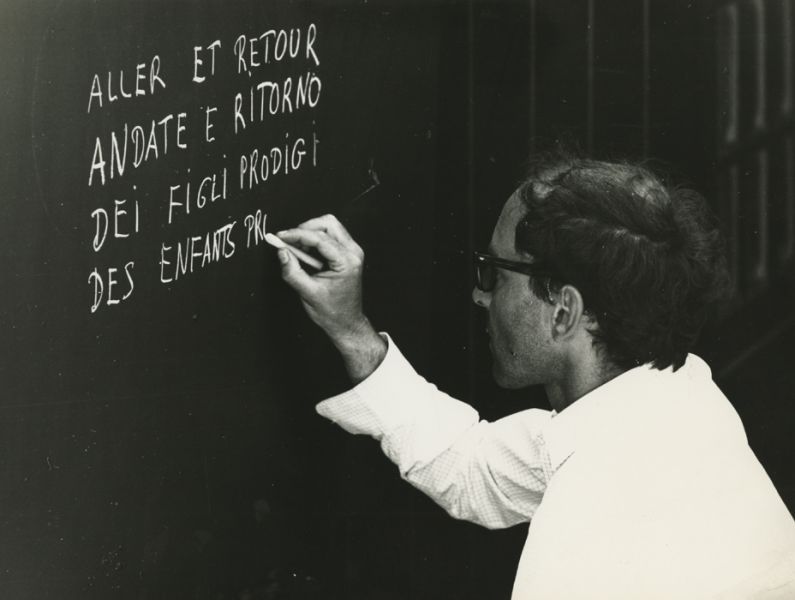 ALLER ET RETOUR
ANDATE E RITORNO
DEI FIGLI PRODIGI
DES ENFANTS PR